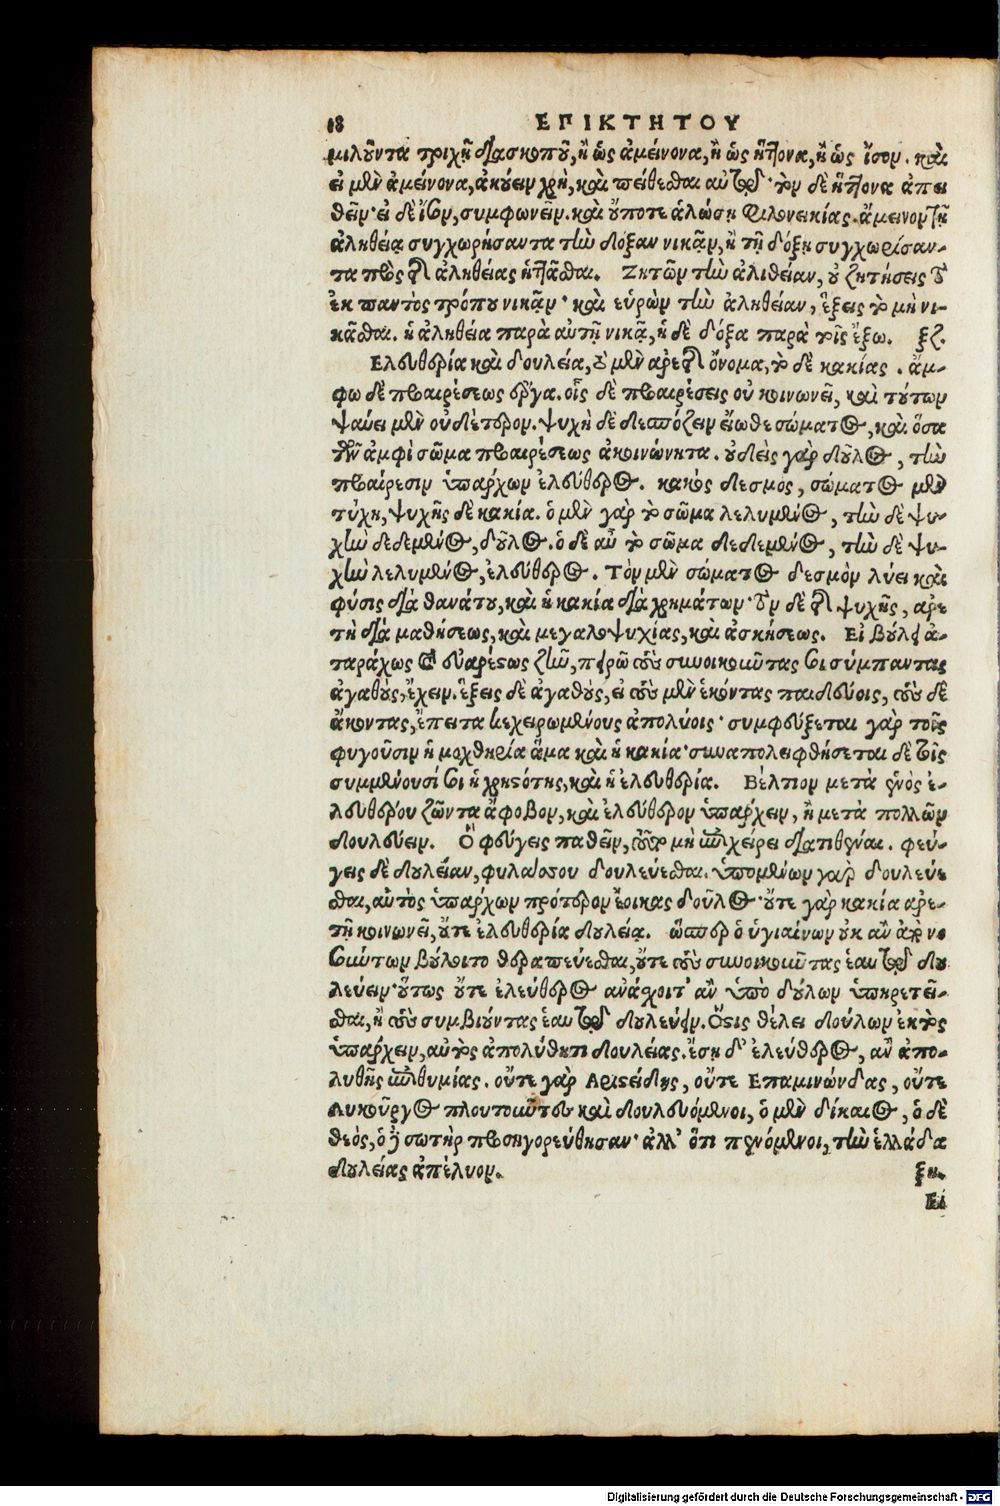 18 ΕΠΙΚΤΗΤΟΥ
μιλοῦντα τριχῆ διασκοποῦ, ἢ ὡς ἀμείνονα, ἢ ὡς ἥττονα, ἢ ὡς ἴσον. καὶ
εἰ μὲν ἀμείνονα, ἀκούειν χρὴ, καὶ πείθεσθαι αὐτῷ· τὸν δὲ ἥττονα ἀπει
θεῖν· εἰ δὲ ἴσον, συμφωνεῖν. καὶ οὔποτε ἁλώσῃ φιλονεικίας. ἄμεινον τῇ
ἀληθείᾳ συγχωρήσαντα τὴν δόξαν νικᾷν, ἢ τῇ δόξῃ συγχωρίσαν-
τα πρὸς τῆς ἀληθείας ἡττᾶσθαι. Ζητῶν τὴν ἀλιθείαν, οὐ ζητήσεις τὸ
ἐκ παντὸς τρόπου νικᾷν· καὶ εὑρὼν τὴν ἀληθείαν, ἕξεις τὸ μὴ νι-
κᾶσθαι. ἡ ἀληθεία παρὰ αὐτῇ νικᾷ, ἡ δὲ δόξα παρὰ τοῖς ἔξω. ξζ.
Ελευθερία καὶ δουλεία, τὸ μὲν ἀρετῆς ὄνομα, τὸ δὲ κακίας. ἄμ-
φω δὲ προαιρέσεως ἔργα. οἷς δὲ προαιρέσεις οὐ κοινωνεῖ, καὶ τούτων
ψαύει μὲν οὐδέτερον. ψυχὴ δὲ δεσπόζειν εἴωθε σώματος, καὶ ὅσα
τῶν ἀμφὶ σῶμα προαιρέσεως ἀκοινώνητα. οὐδεὶς γὰρ δοῦλος, τὴν
προαίρεσιν ὑπάρχων ἐλεύθερος. κακὸς δεσμὸς, σώματος μὲν
τύχη, ψυχῆς δὲ κακία. ὁ μὲν γὰρ τὸ σῶμα λελυμένος, τὴν δὲ ψυ-
χὴν δεδεμένος, δοῦλος. ὁ δὲ αὖ τὸ σῶμα δεδεμένος, τὴν δὲ ψυ-
χὴν λελυμένος, ἐλεύθερος. Τὸν μὲν σώματος δεσμὸν λύει καὶ
φύσις διὰ θανάτου, καὶ ἡ κακία διὰ χρημάτων· τὸν δὲ τῆς ψυχῆς, ἀρε
τὴ διὰ μαθήσεως, καὶ μεγαλοψυχίας, καὶ ἀσκήσεως. Εἰ βούλει ἀ-
ταράχως καὶ εὐαρέστως ζῆν, πειρῶ τοὺς συνοικοῦντας σοι σύμπαντας
ἀγαθοὺς, ἔχειν. ἕξεις δὲ ἀγαθοὺς, εἰ τοὺς μὲν ἑκόντας παιδεύοις, τοὺς δὲ
ἄκοντας, ἔπειτα κεχειρωμένους ἀπολύοις· συμφεύξεται γὰρ τοῖς
φυγοῦσιν ἡ μοχθηρία ἅμα καὶ ἡ κακία· συναπολειφθήσεται δὲ τοῖς
συμμένουσί σοι ἡ χρηστότης, καὶ ἡ ἐλευθερία. Βέλτιον μετὰ ἑνὸς ἐ-
λευθέρου ζῶντα ἄφοβον, καὶ ἐλεύθερον ὑπάρχειν, ἢ μετὰ πολλῶν
δουλεύειν. Ὃ φεύγεις παθεῖν, τοῦτο μὴ ἐπιχείρει διατιθέναι. φεύ-
γεις δὲ δουλείαν, φυλάσσου δουλεύεσθαι. ὑπομένων γὰρ δουλεύε
σθαι, αὐτὸς ὑπάρχων πρότερον ἔοικας δοῦλος· οὔτε γὰρ κακία ἀρε-
τῇ κοινωνεῖ, οὔτε ἐλευθερία δουλείᾳ. ὥσπερ ὁ ὑγιαίνων οὐκ ἂν ὑπὸ νο
σούντων βούλοιτο θεραπεύεσθαι, οὔτε τοὺς συνοικοῦντας ἑαυτῷ δου
λεύειν· οὕτως οὔτε ἐλεύθερος ἀνάσχοιτ' ἂν ὑπὸ δούλων ὑπηρετεῖ-
σθαι, ἢ τοὺς συμβιοῦντας ἑαυτῷ δουλεύειν. Ὅστις θέλει δούλων ἐκτὸς
ὑπάρχειν, αὐτὸς ἀπολύθητι δουλείας. ἔσῃ δ' ἐλεύθερος, ἂν ἀπο-
λυθῇς ἐπιθυμίας. οὔτε γὰρ Αριστείδης, οὔτε Επαμινώνδας, οὔτε
Λυκοῦργος πλουτοῦντες καὶ δουλευόμενοι, ὁ μὲν δίκαιος, ὁ δὲ
θεὸς, ὁ δὲ σωτὴρ προσηγορεύθησαν· ἀλλ' ὅτι πενόμενοι, τὴν ἑλλάδα
δουλείας ἀπέλυον. ξη.
Εἰ
Digitalisierung gefördert durch die Deutsche Forschungsgemeinschaft - DFG